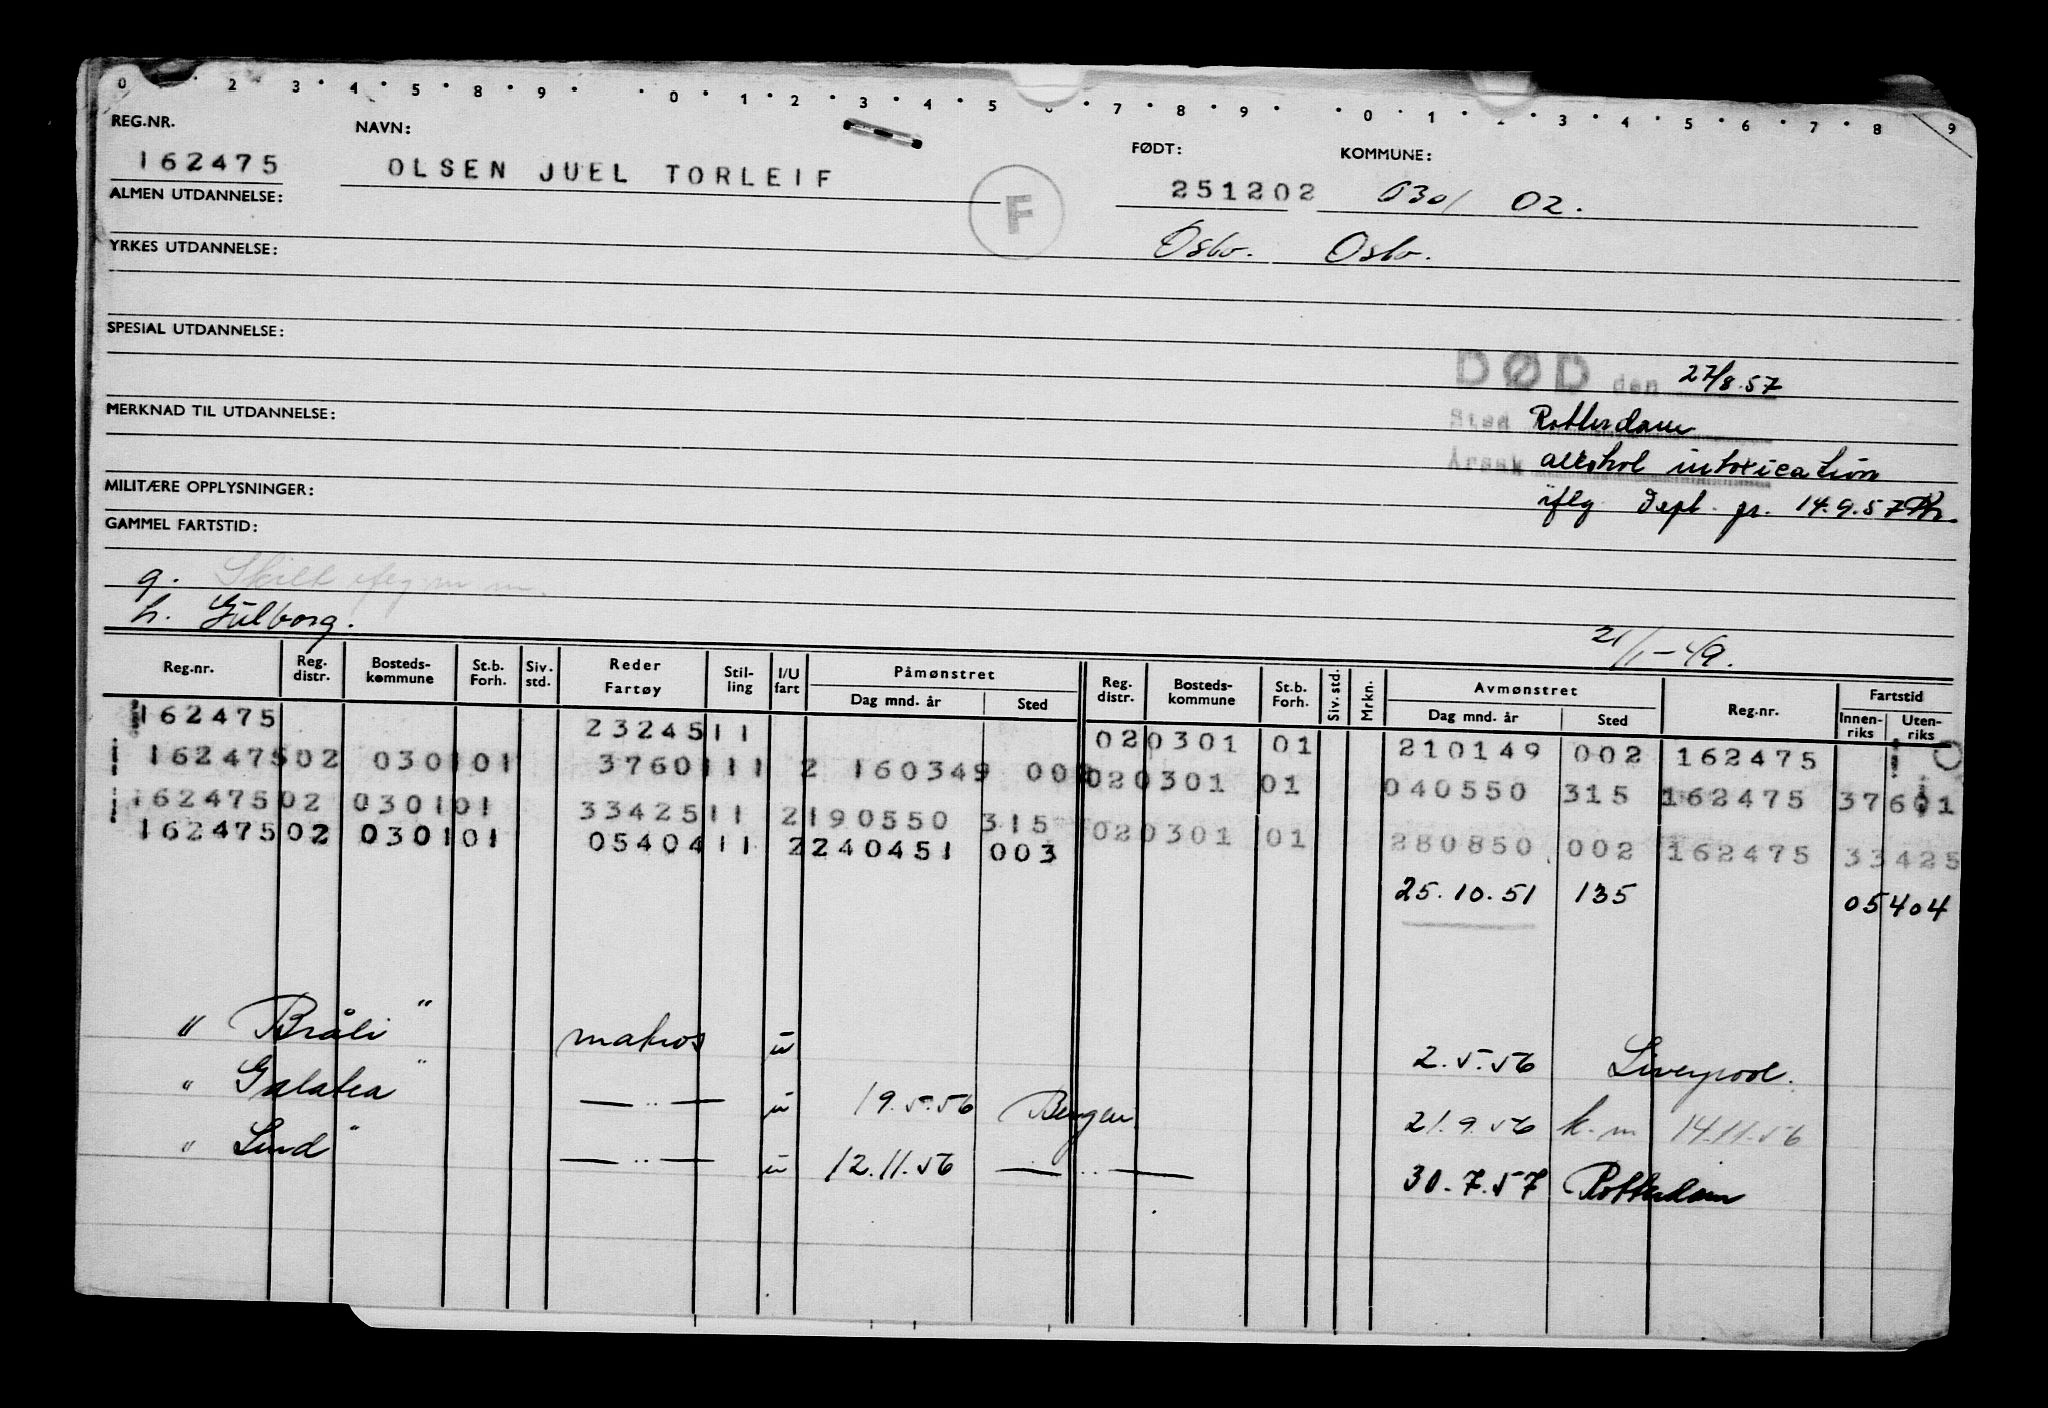 0 2 3 4 5 8 9 0 1 2 3 4 5 6 7 8 9 0 1 2 3 4 5 6 7 8 9
REG.NR. NAVN: FØDT: KOMMUNE:
162475 OLSEN JUEL TORLEIF F 251202 0301 02.
ALMEN UTDANNELSE:
Oslo. Oslo.
YRKES UTDANNELSE:
SPESIAL UTDANNELSE:
DØD den 27/8.57
MERKNAD TIL UTDANNELSE:
Sted Rotterdam
Årsak alcohol intoxication
MILITÆRE OPPLYSNINGER:
iflg Dept. gr. 14.9.57
GAMMEL FARTSTID:
g. Skilt
h. Gulborg. 21/1-49.
Reg.nr. Reg. distr. Bosteds-kommune St.b. Forh. Siv. std. Reder Fartøy Stil-ling I/U fart Påmønstret Dag mnd. år Sted Reg. distr. Bosteds-kommune St.b. Forh. Siv. std. Mrkn. Avmønstret Dag mnd. år Sted Reg.nr. Fartstid Innen-riks Uten-riks
162475 23245 11 02 0301 01 210149 002 162475
162475 02 0301 01 37601 11 2 160349 002 02 0301 01 040550 315 162475 37601
162475 02 0301 01 33425 11 2 190550 315 02 0301 01 280850 002 162475 33425
162475 02 0301 01 05404 11 2 240451 003
25.10.51 135 05404
" Bråli " matros u 2.5.56 Liverpool.
" Galatea " — " — u 19.5.56 Bergen 21.9.56 k.m 14.11.56
" Lind " — " — u 12.11.56 — " — 30.7.57 Rotterdam